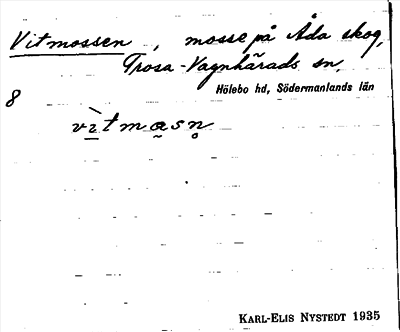 Vitmossen, mosse på Åda skog,
Trosa-Vagnhärads sn,
Hölebo hd, Södermanlands län
8
vìtmasn̥
KARL-ELIS NYSTEDT 1935